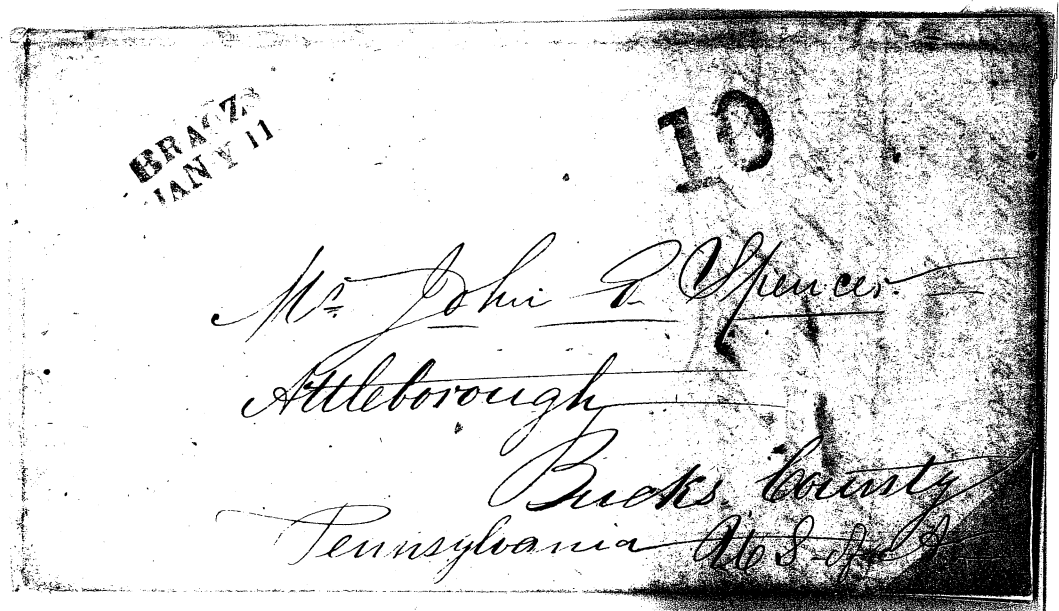 BRAZ
JANY 11
10
Mr. John P. Spencer.
Attleborough
Bucks County
Pennsylvania U S of A